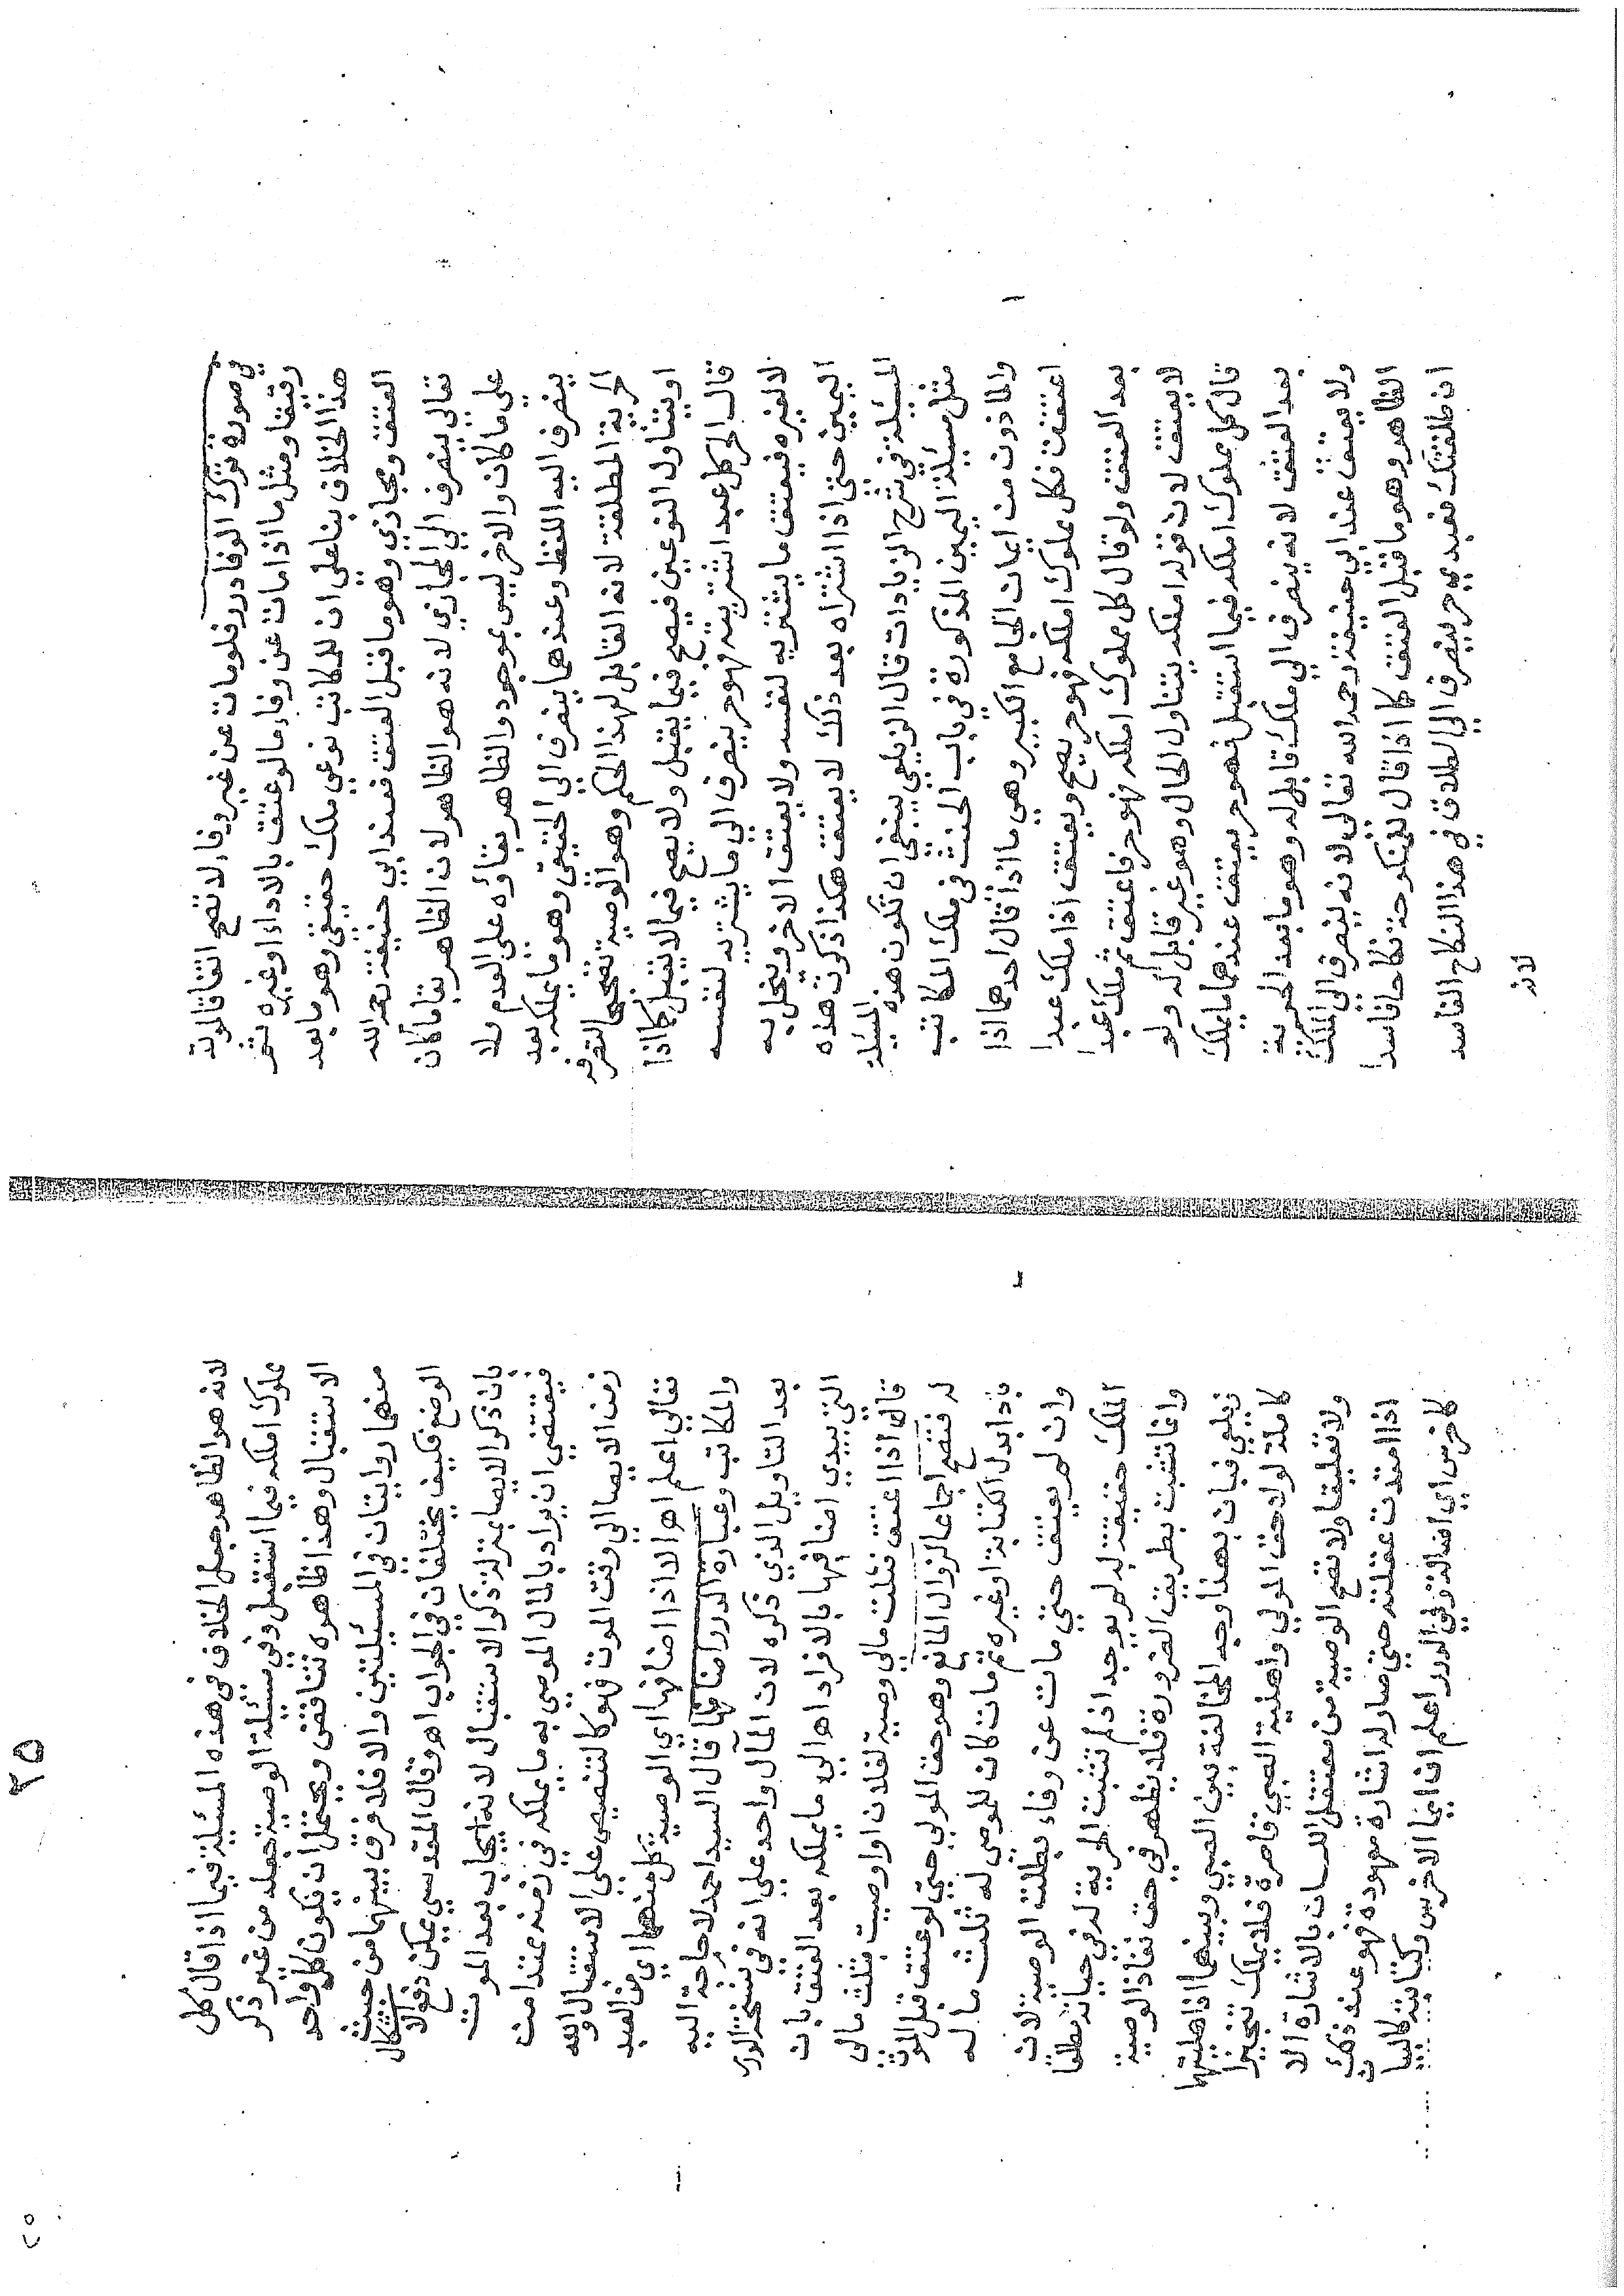 في صورة ترك الوفا درر فلو مات عن غير وفاء لا تصح اتفاقا لموته
رقيقا ومثل ما اذا مات عن وفاء ما لو عتق بالاداء او غيره ثم
هذا الخلاف بنا على ان للمكاتب نوعي ملك حقيقي وهو ما بعد
العتق ومجازي وهو ما قبل العتق فعند ابي حنيفة رحمه الله
تعالى ينصرف الي المجازي لانه هو الظاهر لان الظاهر بقا ما كان
على ما كان والاخر ليس بموجود والظاهر بقاؤه على العدم فلا
ينصرف اليه اللفظ وعندهما ينصرف الي الحقيقي وهو ما يملكه بعد
الحرية المطلقة لانه القابل لهذا الحكم وهو الوصية تصحيحا لتصرفه
او يتناول النوعين فيصح فيما يقبل ولا يصح فيما لا يقبل كما اذا
قال الحر كل عبد اشتريته فهو حر ينصرف الي ما يشتريه لنفسه
لا لغيره فيعتق ما يشتريه لنفسه ولا يعتق الاخر وينحل به
اليمين حتى اذا اشتراه بعد ذلك لا يعتق هكذا ذكرت هذه
المسيلة في شرح الزيادات قال الزيلعي ينبغي ان تكون هذه المسيلة
مثل مسيلة اليمين المذكورة في باب الحنث في ملك المكاتب
والماذون من ايمان الجامع الكبير وهي ما اذا قال احدهما اذا
اعتقت فكل مملوك املكه فهو حر يصح ويعتق اذا ملك عبدا
بعد العتق ولو قال كل مملوك املكه فهو حر فاعتق ثم ملك عبدا
لا يعتق لان قوله املكه يتناول الحال وهو غير قابل له ولو
قال كل مملوك املكه فيما استقبل فهو حر يعتق عندهما ما يملك
بعد العتق لانه ينصرف الي ملك قابل له وهو ما بعد الحرية
ولا يعتق عند ابي حنيفة رحمه الله تعالى لانه ينصرف الي الملك
الظاهر وهو ما قبل العتق كما اذا قال لمنكوحة نكاحا فاسدا
ان طلقتك فعبدي حر ينصرف الي الطلاق في هذا النكاح الفاسد
لانه
٢٥
لانه هو الظاهر وجعل الخلاف في هذه المسيلة فيما اذا قال كل
مملوك املكه فيما استقبل وفي مسئلة الوصية جعله من غير ذكر
الاستقبال وهذا ظاهره تناقض ويحتمل ان يكون كل واحد
منهما روايتان في المسيلتين والا فلا فرق بينهما من حيث
الوضع فكيف يختلفان في الجواب اه وقال المقدسي يمكن دفع الاشكال
بان ذكر الايصا بمنزلة ذكر الاستقبال لانه ايجاب بعد الموت
فيقتضي ان يراد بالمال الموصي به ما يملكه في زمنه ممتدا من
زمن الايصا الي وقت الموت فهو كالتنصيص على الاستقبال والله
تعالى اعلم اه الا اذا اضافها اي الوصية كل منهما اي من العبد
والمكاتب وعبارة الدرر اضافها قال السيد احمد لا حاجة اليه
بعد التاويل الذي ذكره لان المآل واحد على انه في نسخة الدرر
التي بيدي اضافها بالافراد اه الي ما يملكه بعد العتق بان
قال اذا اعتق فثلث مالي وصية لفلان او اوصيت بثلث مالي
له فتصح اجماعا لزوال المانع وهو حق المولي حتي لو عتق قبل الموت
باداء بدل الكتابة او غيره ثم مات كان للموصي له ثلث ماله
وان لم يعتق حتي مات عن وفاء بطلت الوصية لان
الملك حقيقة له لم يوجد اذ لم تثبت الحرية له في حياته مطلقا
وانما تثبت بطريق الضرورة فلا يظهر في حق نفاذ الوصية
زيلعي فبان بهذا وجه المخالفة بين الصبي وبينهما اذ اهليتها
كاملة لولا حق المولي واهلية الصبي قاصرة فلا يملك تنجيزا
ولا تعليقا ولا تصح الوصية من معتقل اللسان بالاشارة الا
اذا امتدت عقلته حتي صار له اشارة معهودة فهو عند ذلك
كاخرس اي
٢٥